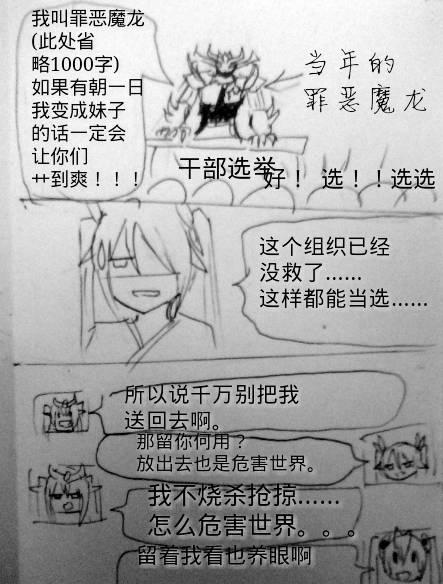 我叫罪恶魔龙
(此处省
略1000字)
如果有朝一日
我变成妹子
的话一定会
让你们
艹到爽！！！
当年的
罪恶魔龙
干部选举
好！ 选！！选选
这个组织已经
没救了……
这样都能当选……
所以说千万别把我
送回去啊。
那留你何用？
放出去也是危害世界。
我不烧杀抢掠……
怎么危害世界。。。
留着我看也养眼啊